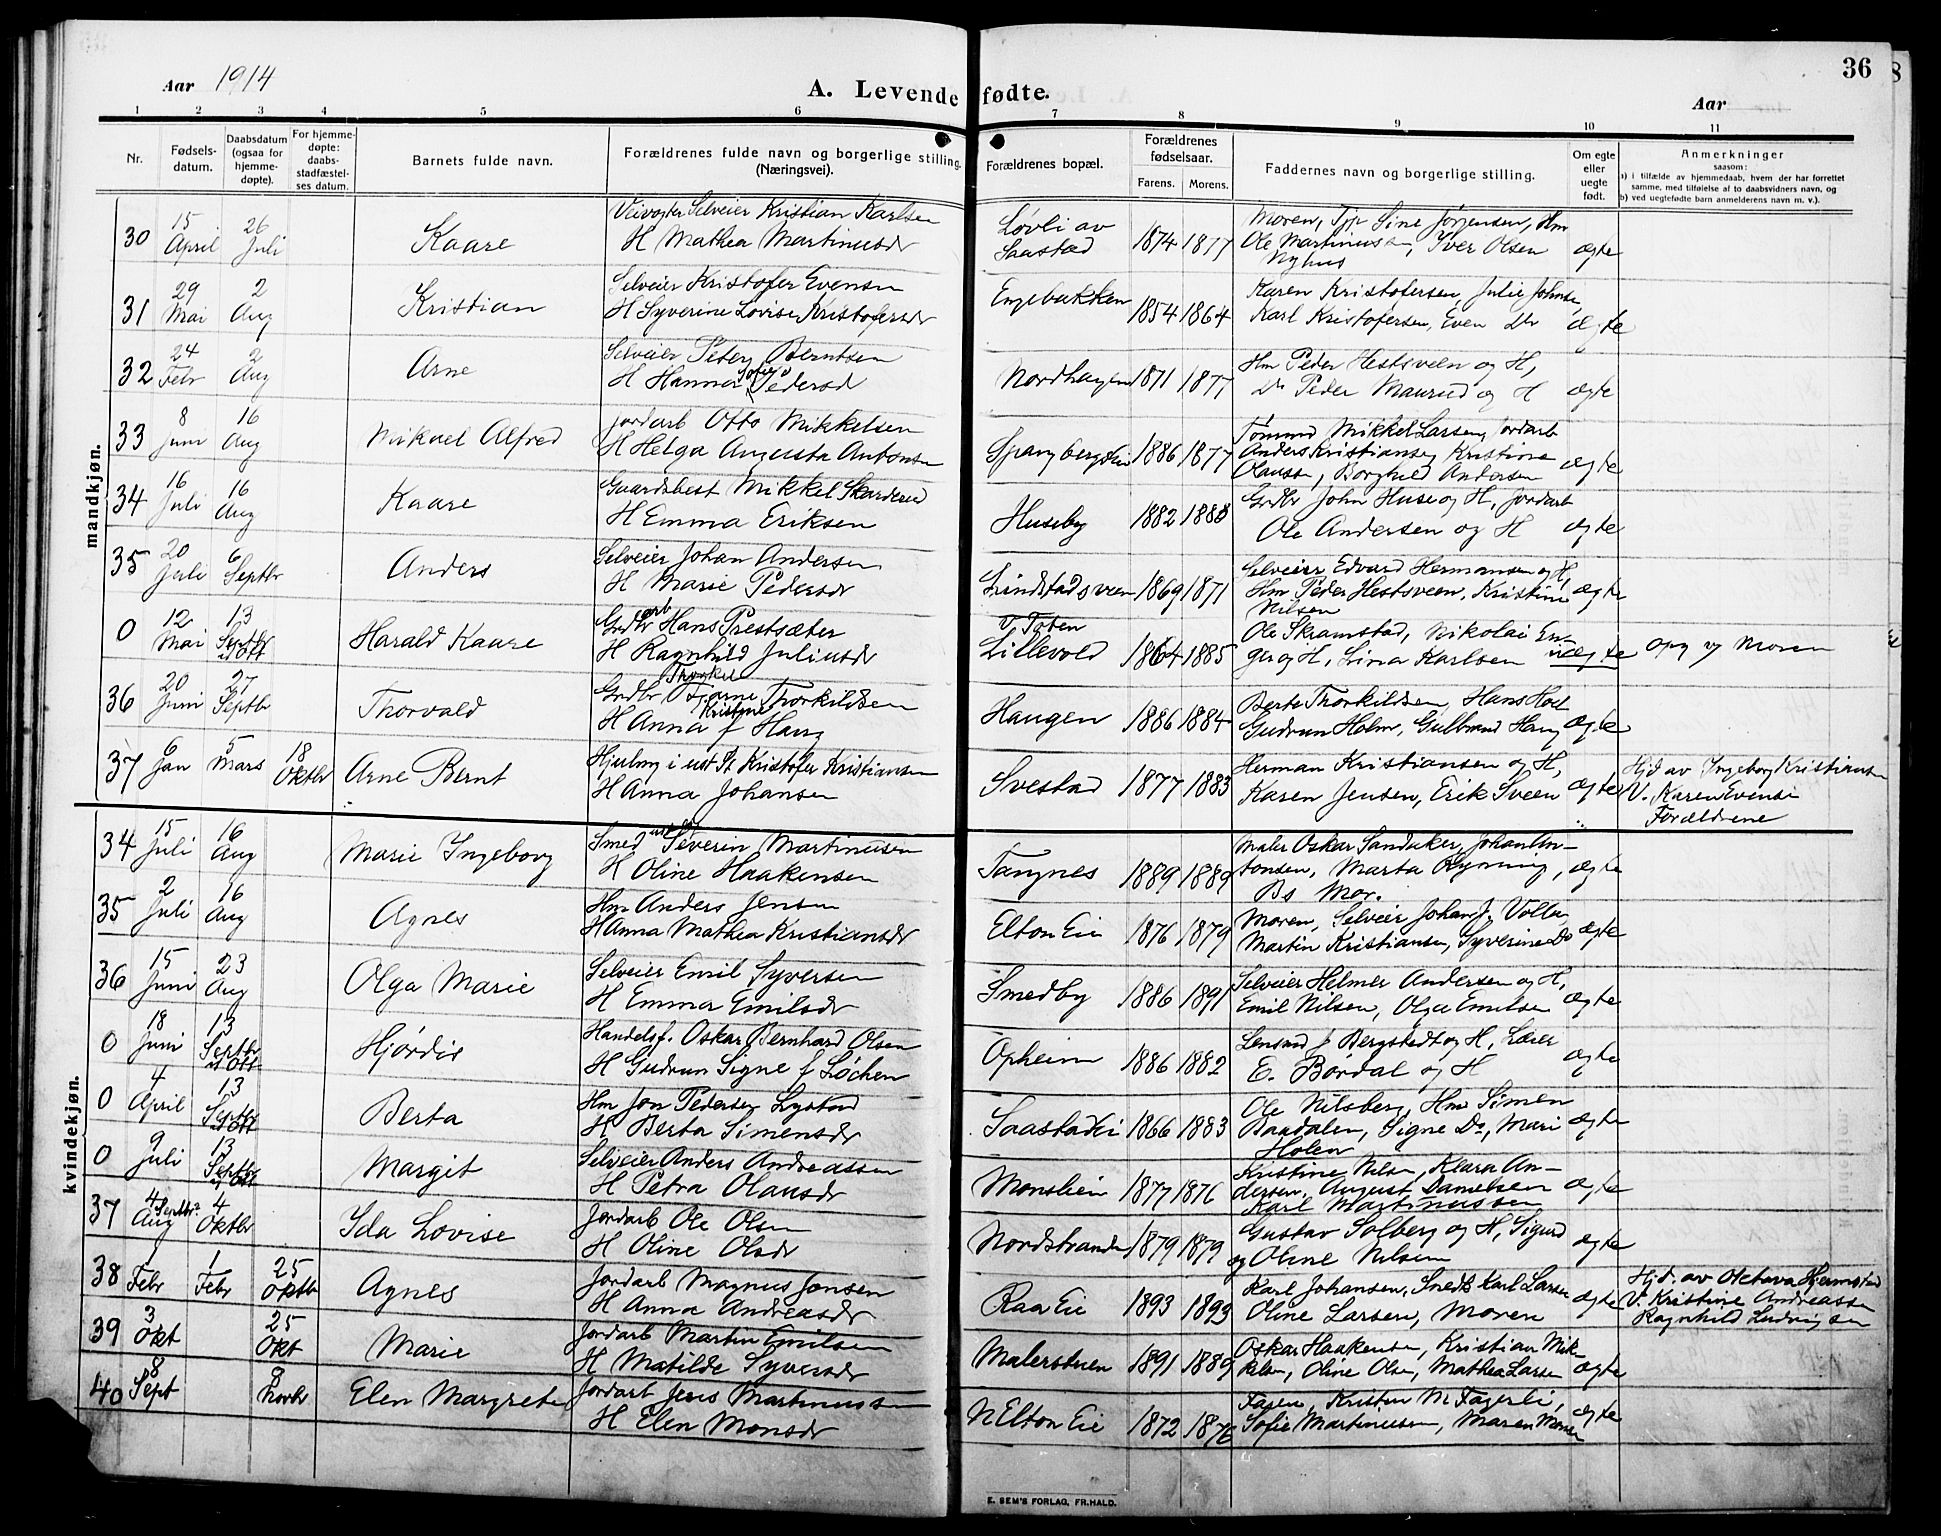 36
Aar 1914
A. Levende fødte.
Aar
1 2 3 4 5 6 7 8 9 10 11
Nr.
Fødsels-
datum.
Daabsdatum
(ogsaa for
hjemme-
døpte).
For hjemme-
døpte:
daabs-
stadfæstel-
ses datum.
Barnets fulde navn.
Forældrenes fulde navn og borgerlige stilling.
(Næringsvei).
Forældrenes bopæl.
Forældrenes
fødselsaar.
Farens. Morens.
Faddernes navn og borgerlige stilling.
Om egte
eller
uegte
født.
Anmerkninger
saasom:
a) i tilfælde av hjemmedaab, hvem der har forrettet
samme, med tilføielse af to daabsvidners navn, og
b) ved uegtefødte barn anmelderens navn m. v.).
mandkjøn.
30 15 April 26 Juli Kaare
Veivogter Selveier Kristian Karlsen
H Mathea Martinusdr
Løvli av
Saastad
1874 1877
Moren, Tjp Sine Jørgensen, Hm
Ole Martinusen, Iver Olsen
Nyhus
ægte
31 29 Mai 2 Aug Kristian
Selveier Kristofer Evensen
H Syverine Lovise Kristofersdr
Engebakken
1854 1864
Karen Kristofersen, Julie Johnsen
Karl Kristofersen, Even Do
ægte
32 24 Febr 2 Aug Arne
Selveier Peter Berntsen
H Hanna Sofie Pedersd
Nordhagen 1871 1877
Hm Peder Hestsveen og H,
Do Peder Maurud og H
ægte
33 8 Juni 16 Aug Mikael Alfred
Jordarb Otto Mikkelsen
H Helga Augusta Antonsen
Spangbergseie 1886 1877
Tømmd Mikkel Larsen, Jordarb
Anders Kristiansen, Kristine
Olausen, Borghild Andersen
ægte
34 16 Juli 16 Aug Kaare
Gaardsbest Mikkel Skarderud
H Emma Eriksen
Huseby 1882 1888
Grdbr John Huse og H, Jordarb
Ole Andersen og H
ægte
35 20 Juli 6 Septbr Anders
Selveier Johan Andersen
H Marie Pedersdr
Lundstadsveen 1869 1871
Selveier Edvard Hermansen og H,
Hm Peder Hestsveen, Kristine
Nilsen
ægte
0 12 Mai 13 Septbr Harald Kaare
Grdbrarb Hans Prestsæter
H Ragnhild Juliusdr
V Toten
Lillevold 1864 1885
Ole Skramstad, Nikolai En-
ger og H, Lina Karlsen
uægte
opg av Moren
36 20 Juni 27 Septbr Thorvald
Grdbr Thorkel Bjarne Thorkildsen
H Anna Kristine f Haug
Haugen 1886 1884
Berte Thorkildsen, Hans Hoel
Gudrun Holm, Gulbrand Haug
ægte
37 6 Jan 5 Mars 18 Oktbr Arne Bernt
Hjulmg i ust St Kristofer Kristiansen
H Anna Johansen
Svestad 1877 1883
Herman Kristiansen og H,
Karen Jensen, Erik Sveen
ægte
Hjd av Ingeborg Kristiansen
V. Karen Evensen
Forældrene
kvindekjøn.
34 15 Juli 16 Aug Marie Ingeborg
Smed Severin Martinusen
H Oline Haakensen
Tangnes 1889 1889
Maler Oskar Sandaker, Johan An-
tonsen, Marta Rognning,
Bs Mor.
ægte
35 2 Juli 16 Aug Agnes
Hm Anders Jensen
H Anna Mathea Kristiansdr
Elton Eie 1876 1879
Moren, Selveier Johan J. Vollen
Martin Kristiansen, Syverine Do
ægte
36 15 Juni 23 Aug Olga Marie
Selveier Emil Syversen
H Emma Emilsdr
Smedby 1886 1891
Selveier Helmer Andersen og H,
Emil Nilsen, Olga Emilsen
ægte
0 18 Juni 13 Septbr Hjørdis
Handelsf. Oskar Bernhard Olsen
H Gudrun Signe f Løchen
Opheim 1886 1882
Lensmd J Bergstedt og H, Lærer
E. Børdal og H
ægte
0 4 April 13 Septbr Berta
Hm Jon Pedersen Lystad
H Berta Simensdr
Saastadei 1866 1883
Ole Nilsberg, Hm Simen
Baadalen, Signe Do, Mari
Holen
ægte
0 9 Juli 13 Septbr Margit
Selveier Anders Andreassen
H Petra Olausdr
Monslien 1877 1876
Kristine Nilsen, Klara An-
dersen, August Danielsen
Karl Martinussen
ægte
37 4 Aug Septbr 4 Oktbr Ida Lovise
Jordarb Ole Olsen
H Oline Olsdr
Nordstranden 1879 1879
Gustav Solberg og H, Sigurd
og Oline Nilsen
ægte
38 1 Febr 1 Febr 25 Oktbr Agnes
Jordarb Magnus Jonsen
H Anna Andreasdr
Raa Eie 1893 1893
Karl Johansen, Smedk Karl Larsen
Oline Larsen, Moren
ægte
Hjd. av Octava Hjermstad
V. Kristine Andreassen
Ragnhild Ludvigsen
39 3 Okt 25 Okt Marie
Jordarb Martin Emilsen
H Matilde Syversdr
Malerstuen 1891 1889
Oskar Haakensen, Kristian Mik-
kelsen, Oline Olsen, Mathea Larsen
ægte
40 8 Sept 8 Novbr Elen Margrete
Jordarb Jens Martinussen
H Elen Monsdr
N Elton Eie 1872 1876
Faren, Kristen M Fagerli,
Sofie Martinusen, Maren Monsen
ægte
E. SEM'S FORLAG, FR.HALD.